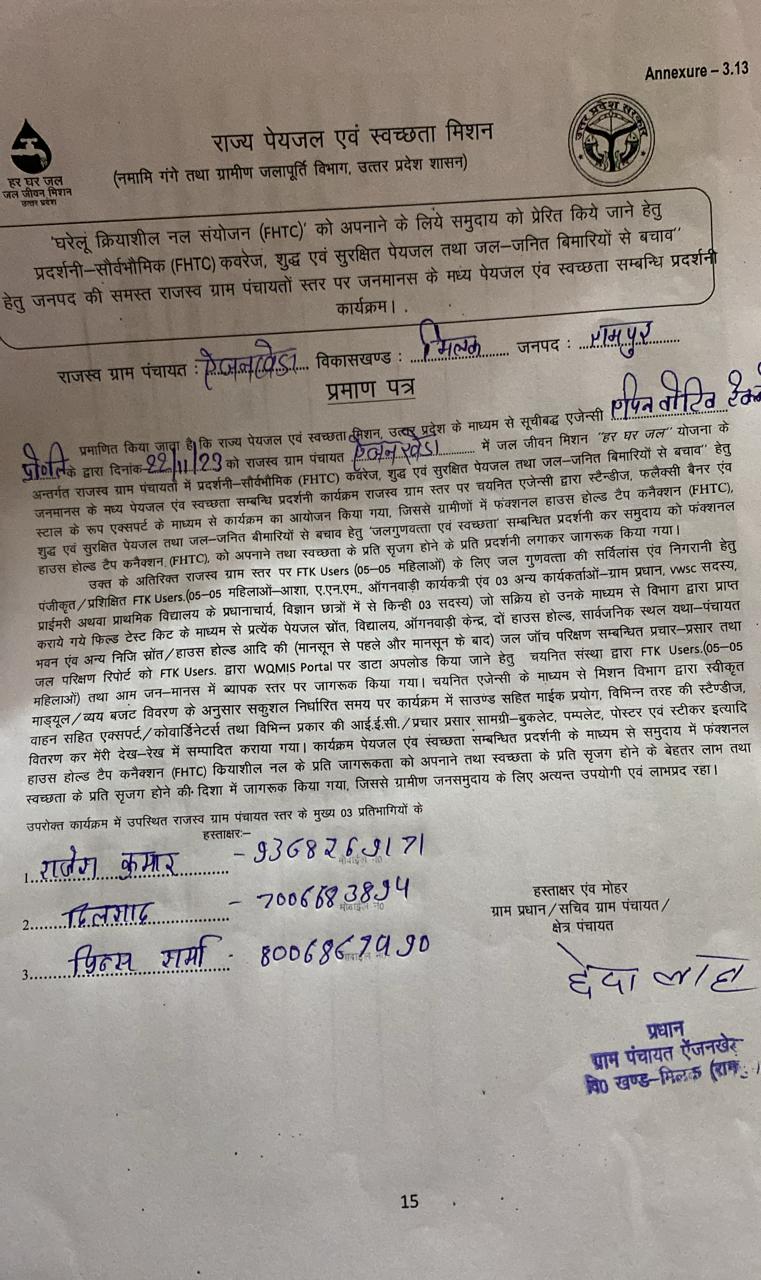 Annexure – 3.13
राज्य पेयजल एवं स्वच्छता मिशन
(नमामि गंगे तथा ग्रामीण जलापूर्ति विभाग, उत्तर प्रदेश शासन)
हर घर जल
जल जीवन मिशन
उत्तर प्रदेश
उत्तर प्रदेश सरकार
'घरेलू क्रियाशील नल संयोजन (FHTC)' को अपनाने के लिये समुदाय को प्रेरित किये जाने हेतु
प्रदर्शनी–सौर्वभौमिक (FHTC) कवरेज, शुद्ध एवं सुरक्षित पेयजल तथा जल–जनित बिमारियों से बचाव"
हेतु जनपद की समस्त राजस्व ग्राम पंचायतों स्तर पर जनमानस के मध्य पेयजल एंव स्वच्छता सम्बन्धि प्रदर्शनी
कार्यक्रम।
राजस्व ग्राम पंचायत : ऐंजनखेडा विकासखण्ड : मिलक जनपद : रामपुर
प्रमाण पत्र
प्रमाणित किया जाता है कि राज्य पेयजल एवं स्वच्छता मिशन, उत्तर प्रदेश के माध्यम से सूचीबद्ध एजेन्सी
प्रा०लि० के द्वारा दिनांक 22/11/23 को राजस्व ग्राम पंचायत ऐंजनखेडा में जल जीवन मिशन "हर घर जल" योजना के
अन्तर्गत राजस्व ग्राम पंचायतों में प्रदर्शनी–सौर्वभौमिक (FHTC) कवरेज, शुद्ध एवं सुरक्षित पेयजल तथा जल–जनित बिमारियों से बचाव" हेतु
जनमानस के मध्य पेयजल एंव स्वच्छता सम्बन्धि प्रदर्शनी कार्यक्रम राजस्व ग्राम स्तर पर चयनित एजेन्सी द्वारा स्टैन्डीज, फलैक्सी बैनर एंव
स्टाल के रूप एक्सपर्ट के माध्यम से कार्यक्रम का आयोजन किया गया, जिससे ग्रामीणों में फंक्शनल हाउस होल्ड टैप कनैक्शन (FHTC),
शुद्ध एवं सुरक्षित पेयजल तथा जल–जनित बीमारियों से बचाव हेतु 'जलगुणवत्ता एवं स्वच्छता' सम्बन्धित प्रदर्शनी कर समुदाय को फंक्शनल
हाउस होल्ड टैप कनैक्शन, (FHTC), को अपनाने तथा स्वच्छता के प्रति सृजग होने के प्रति प्रदर्शनी लगाकर जागरूक किया गया।
उक्त के अतिरिक्त राजस्व ग्राम स्तर पर FTK Users (05–05 महिलाओं) के लिए जल गुणवत्ता की सर्विलांस एंव निगरानी हेतु
पंजीकृत/प्रशिक्षित FTK Users.(05–05 महिलाओं–आशा, ए.एन.एम., ऑगनवाड़ी कार्यकत्री एंव 03 अन्य कार्यकर्ताओं–ग्राम प्रधान, vwsc सदस्य,
प्राईमरी अथवा प्राथमिक विद्यालय के प्रधानाचार्य, विज्ञान छात्रों में से किन्ही 03 सदस्य) जो सक्रिय हो उनके माध्यम से विभाग द्वारा प्राप्त
कराये गये फिल्ड टेस्ट किट के माध्यम से प्रत्येंक पेयजल स्रोंत, विद्यालय, ऑगनवाड़ी केन्द्र, दों हाउस होल्ड, सार्वजनिक स्थल यथा–पंचायत
भवन एंव अन्य निजि स्रोंत/हाउस होल्ड आदि की (मानसून से पहले और मानसून के बाद) जल जॉच परिक्षण सम्बन्धित प्रचार–प्रसार तथा
जल परिक्षण रिपोर्ट को FTK Users. द्वारा WQMIS Portal पर डाटा अपलोड किया जाने हेतु चयनित संस्था द्वारा FTK Users.(05–05
महिलाओं) तथा आम जन–मानस में ब्यापक स्तर पर जागरूक किया गया। चयनित एजेन्सी के माध्यम से मिशन विभाग द्वारा स्वीकृत
माड्यूल/व्यय बजट विवरण के अनुसार सकुशल निर्धारित समय पर कार्यक्रम में साउण्ड सहित माईक प्रयोग, विभिन्न तरह की स्टैण्डीज,
वाहन सहित एक्सपर्ट/कोवार्डिनेटर्स तथा विभिन्न प्रकार की आई.ई.सी./प्रचार प्रसार सामग्री–बुकलेट, पम्पलेट, पोस्टर एवं स्टीकर इत्यादि
वितरण कर मेरी देख–रेख में सम्पादित कराया गया। कार्यक्रम पेयजल एंव स्वच्छता सम्बन्धित प्रदर्शनी के माध्यम से समुदाय में फंक्शनल
हाउस होल्ड टैप कनैक्शन (FHTC) कियाशील नल के प्रति जागरूकता को अपनाने तथा स्वच्छता के प्रति सृजग होने के बेहतर लाभ तथा
स्वच्छता के प्रति सृजग होने की दिशा में जागरूक किया गया, जिससे ग्रामीण जनसमुदाय के लिए अत्यन्त उपयोगी एवं लाभप्रद रहा।
उपरोक्त कार्यक्रम में उपस्थित राजस्व ग्राम पंचायत स्तर के मुख्य 03 प्रतिभागियों के
हस्ताक्षर:–
1. राजेश कुमार – 9368269171
मोबाईल न0
2. दिलशाद – 7006683894
मोबाईल न0
3. प्रिन्स शर्मा - 8006867990
हस्ताक्षर एंव मोहर
ग्राम प्रधान/सचिव ग्राम पंचायत/
क्षेत्र पंचायत
छेदा लाल
प्रधान
ग्राम पंचायत ऐंजनखेड़
वि0 खण्ड–मिलक (राम
15